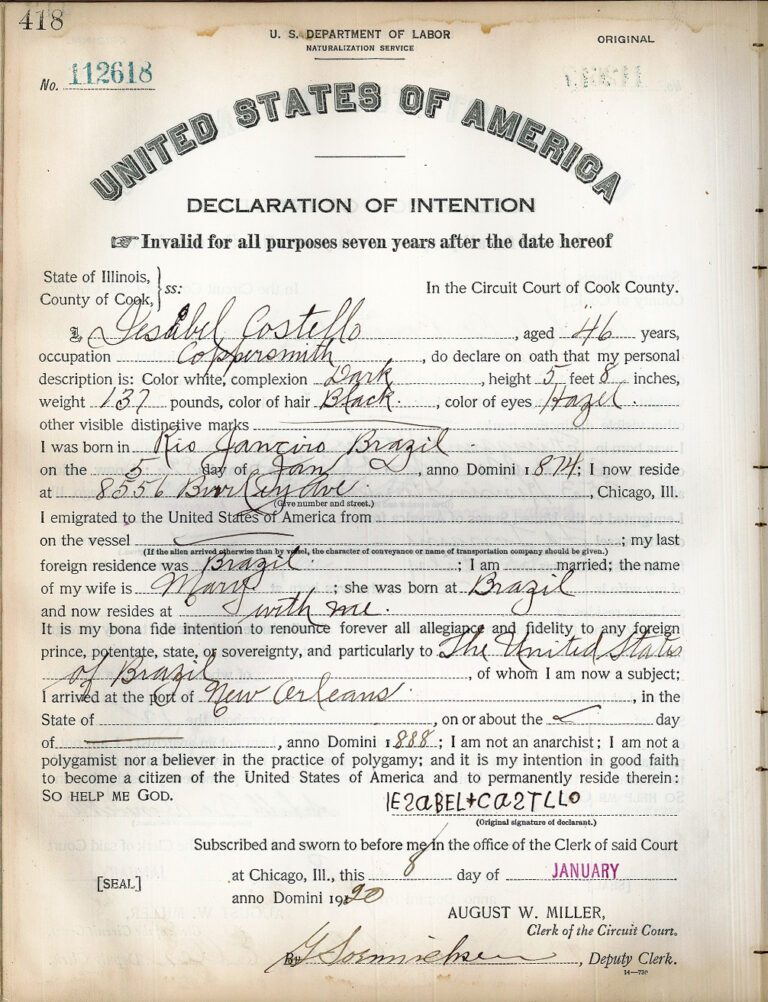 418
U. S. DEPARTMENT OF LABOR
NATURALIZATION SERVICE
ORIGINAL
No. 112618
UNITED STATES OF AMERICA
DECLARATION OF INTENTION
☞ Invalid for all purposes seven years after the date hereof
State of Illinois,
County of Cook, } ss:
In the Circuit Court of Cook County.
I, Costello, aged 46 years,
occupation Coppersmith, do declare on oath that my personal
description is: Color white, complexion Dark, height 5 feet 8 inches,
weight 137 pounds, color of hair Black, color of eyes Hazel.
other visible distinctive marks
I was born in Rio Janeiro Brazil
on the 5 day of Jan, anno Domini 1874; I now reside
at 8556 Ave, Chicago, Ill.
(Give number and street.)
I emigrated to the United States of America from
on the vessel ; my last
(If the alien arrived otherwise than by vessel, the character of conveyance or name of transportation company should be given.)
foreign residence was Brazil. ; I am married; the name
of my wife is Mary ; she was born at Brazil
and now resides at with me.
It is my bona fide intention to renounce forever all allegiance and fidelity to any foreign
prince, potentate, state, or sovereignty, and particularly to The United States
of Brazil, of whom I am now a subject;
I arrived at the port of New Orleans, in the
State of , on or about the day
of , anno Domini 1888; I am not an anarchist; I am not a
polygamist nor a believer in the practice of polygamy; and it is my intention in good faith
to become a citizen of the United States of America and to permanently reside therein:
SO HELP ME GOD.
IEZABEL+CAZTLLO
(Original signature of declarant.)
Subscribed and sworn to before me in the office of the Clerk of said Court
[SEAL]
at Chicago, Ill., this 8 day of JANUARY
anno Domini 1920
AUGUST W. MILLER,
Clerk of the Circuit Court.
By , Deputy Clerk.